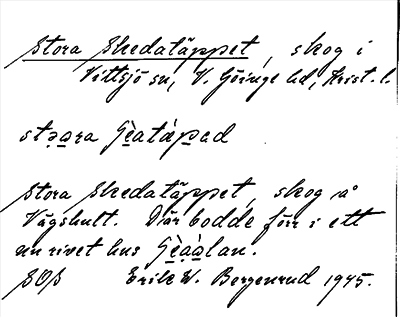 Stora Skedatäppet, skog i
Vittsjö sn, V. Göinge hd, Krist. l.
stạạra Gèatápad
Stora Skedatäppet, skog å
Vägshult. Där bodde förr i ett
nu rivet hus Gèạàlan.
SOS Erik W. Bergenrud 1945.